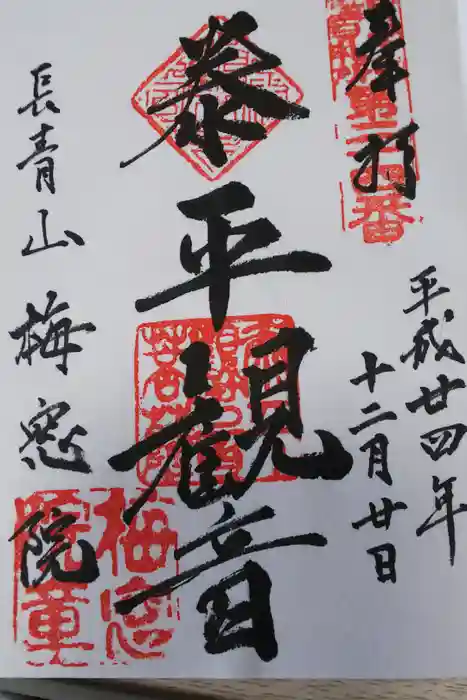 奉拝
平成廿四年
十二月廿日
泰平観音
長青山梅窓院